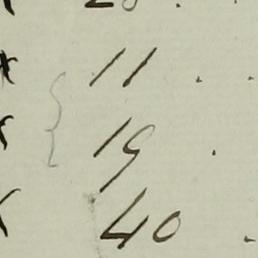 11 . .
19 .
40 .